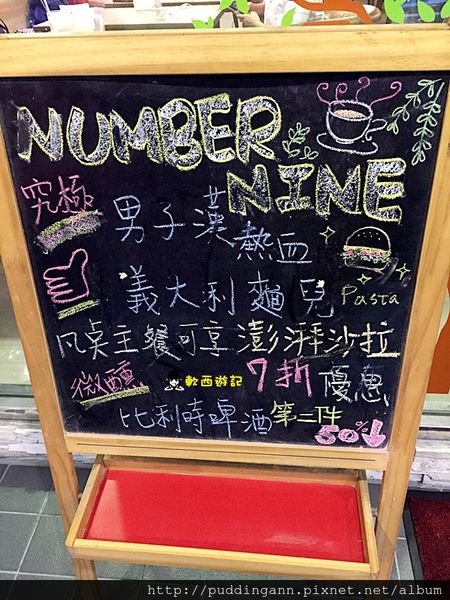 NUMBER
NINE
究極
男子漢
熱血
義大利麵兒 Pasta
凡点主餐可享澎湃沙拉
微醺 軟西遊記 7折優惠
比利時啤酒 第二件
50%↓
http://puddingann.pixnet.net/album